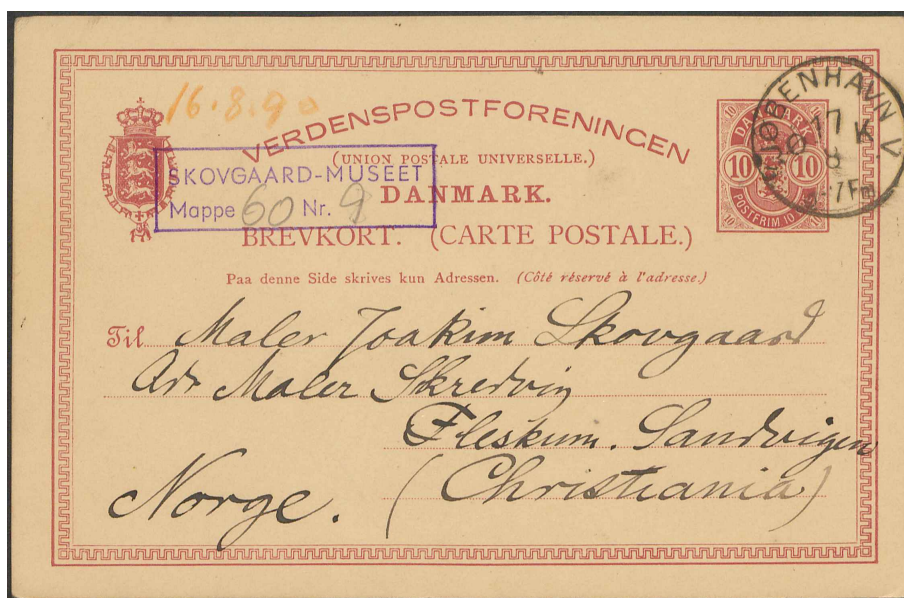 16.8.90
VERDENSPOSTFORENINGEN
(UNION POSTALE UNIVERSELLE.)
SKOVGAARD-MUSEET
DANMARK.
Mappe 60 Nr. 9
BREVKORT. (CARTE POSTALE.)
DANMARK
10 10
POSTFRIM 10
KJØBENHAVN V.
17
8
Paa denne Side skrives kun Adressen. (Côté réservé à l'adresse.)
Til Maler Joakim Skovgaard
Adr Maler Skredvig
Fleskum. Sandvigen
(Christiania)
Norge.